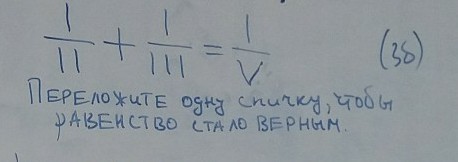 I/II + I/III = I/V (38)
ПЕРЕЛОЖИТЕ ОДНУ СПИЧКУ, ЧТОБЫ
РАВЕНСТВО СТАЛО ВЕРНЫМ.